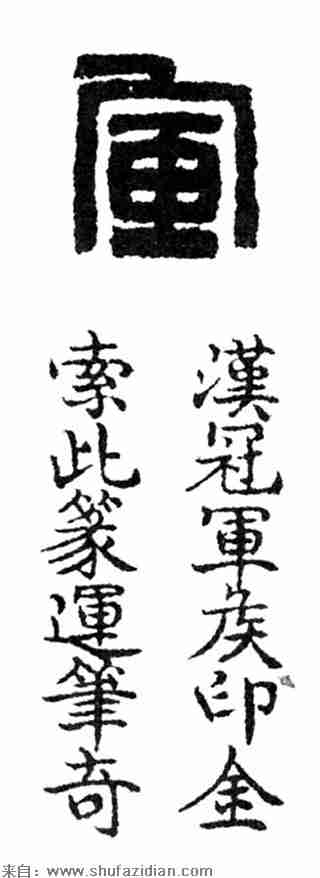 軍
漢冠軍侯印金
索此篆運筆奇
来自：www.shufazidian.com